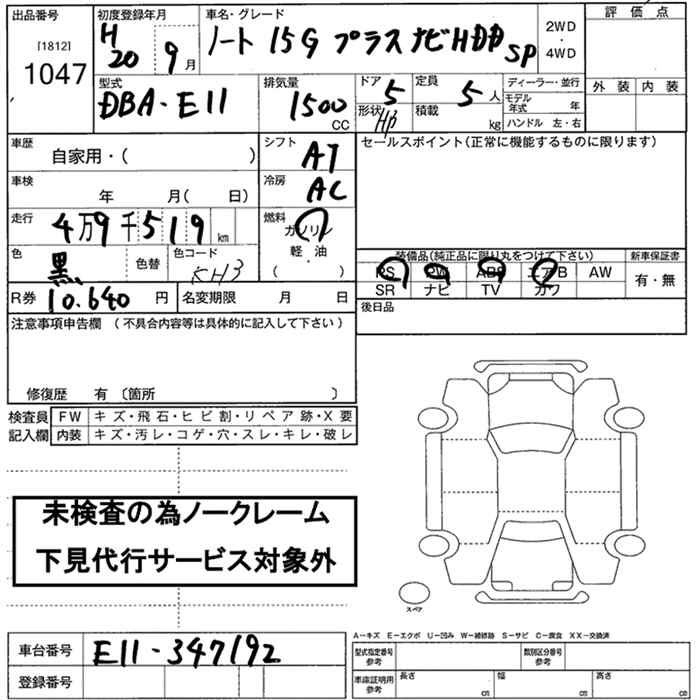 出品番号 初度登録年月 車名・グレード 評価点
[1812] H20 9月 ノート 15G プラスナビHDD SP 2WD・4WD
1047 外装 内装
型式 排気量 ドア 定員 ディーラー・並行
DBA-E11 1500CC 5 5人 モデル年式 年
形状 HB 積載 kg ハンドル 左・右
車歴 シフト セールスポイント(正常に機能するものに限ります)
自家用・( ) AT
車検 年 月( 日) 冷房 AC
走行 4万9千519km 燃料 ガソリン
軽・油
( )
色 黒 色替 色コード KH3 装備品(純正品に限り丸をつけて下さい) 新車保証書
PS PW ABS エアB AW 有・無
SR ナビ TV カワ
R券 10.640円 名変期限 月 日 後日品
注意事項申告欄 (不具合内容等は具体的に記入して下さい)
修復歴 有 〔箇所 〕
検査員 FW キズ・飛石・ヒビ割・リペア跡・X要
記入欄 内装 キズ・汚レ・コゲ・穴・スレ・キレ・破レ
未検査の為ノークレーム
下見代行サービス対象外
スペア
A−キズ E−エクボ U−凹み W−補修跡 S−サビ C−腐食 XX−交換済
車台番号 E11-347192 型式指定番号 参考 類別区分番号 参考
登録番号 車庫証明用 参考 長さ cm 幅 cm 高さ cm